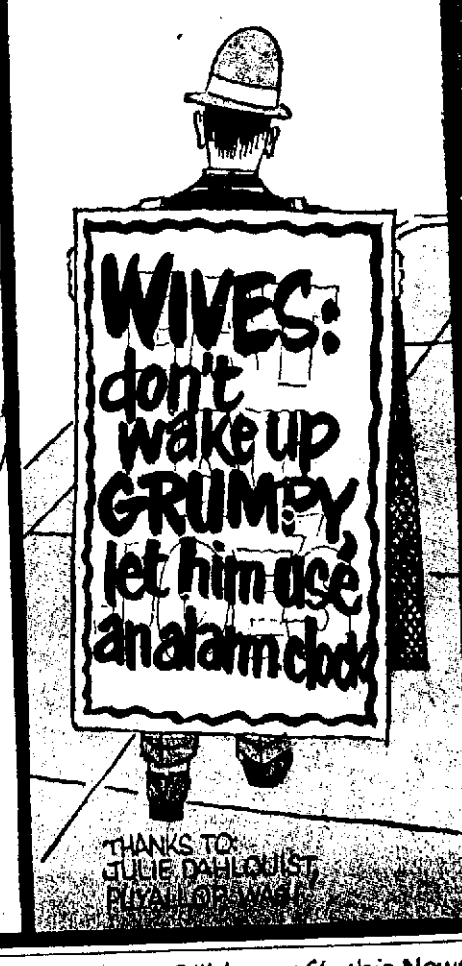 WIVES:
don't
wake up
GRUMPY,
let him use
an alarm clock
THANKS TO:
JULIE DAHLQUIST,
PUYALLUP, WASH.